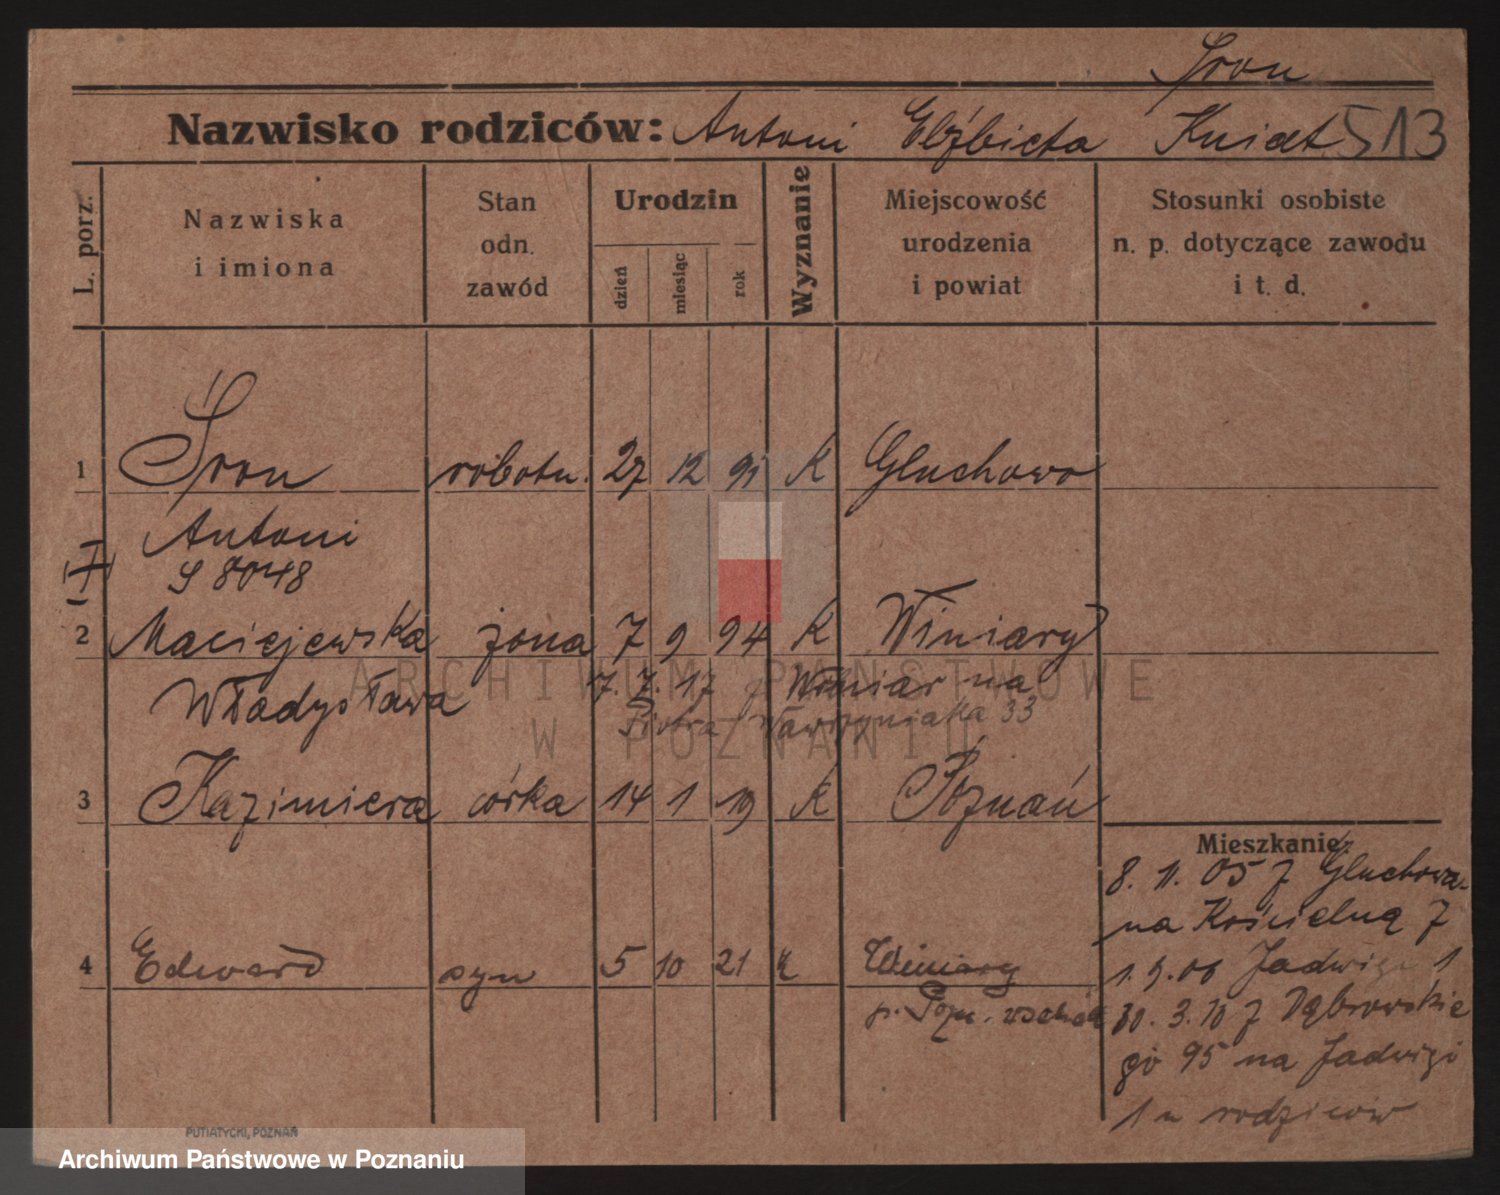 Sron
Nazwisko rodziców: Antoni Elżbieta Kniat 513
L. porz.
Nazwiska
i imiona
Stan
odn.
zawód
Urodzin
dzień
miesiąc
rok
Wyznanie
Miejscowość
urodzenia
i powiat
Stosunki osobiste
n. p. dotyczące zawodu
i t. d.
1 Sron robotn. 27 12 91 K Gluchowo
Antoni
S 8048
2 Maciejewska żona 7 9 94 K Winiary
Władysława 7.7.17 z Winiar na
Piotra Wawrzyniaka 33
3 Kazimiera córka 14 1 19 K Poznań
Mieszkanie:
8. 11. 05 z Gluchowa
na Kościelną 7
4 Edward syn 5 10 21 K Winiary
p. Pozn. wschód
1. 9. 06 Jadwigi 1
30. 3. 10 z Dąbrowskie
go 95 na Jadwigi
1 u rodziców
PUTIATYCKI, POZNAŃ
ARCHIWUM PAŃSTWOWE
W POZNANIU
Archiwum Państwowe w Poznaniu